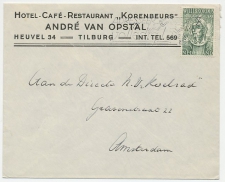 HOTEL-CAFÉ-RESTAURANT „KORENBEURS"
ANDRÉ VAN OPSTAL
HEUVEL 34 — TILBURG — INT. TEL. 569
Aan de Directie N.V.
Gravenstraat 22
Amsterdam